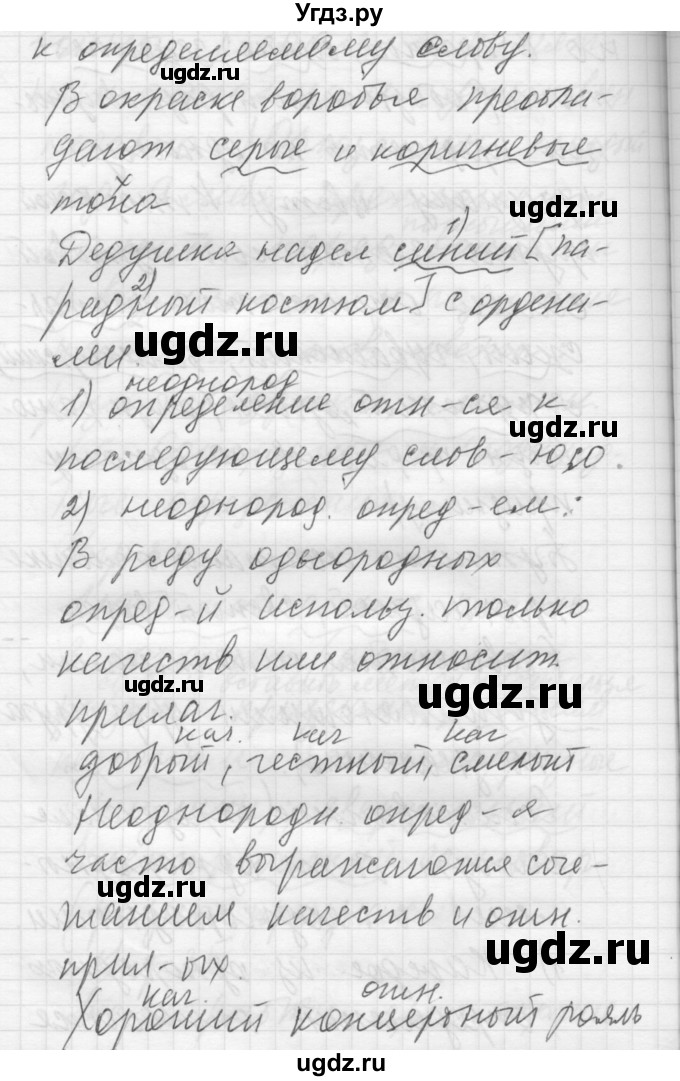 Угдз.ру
к определяемому слову.
ugdz.ru
В окраске воробья преобла-
дают серые и коричневые
тона
ugdz.ru
1)
Дедушка надел синий [па-
2)
радный костюм] с ордена-
ugdz.ru
ми.
неоднород
1) определение отн-ся к
ugdz.ru
последующему слов-ю
2) неоднород. опред-ем:
В ряду однородных
опред-й использ. только
качеств или относит.
ugdz.ru
ugdz.ru
прилаг.
кач. кач кач
добрый, честный, смелый
Неоднородн. опред-я
часто выражаются соче-
ugdz.ru
танием качеств и отн.
ugdz.ru
прил-ых.
кач. отн.
Хороший концертный рояль
ugdz.ru